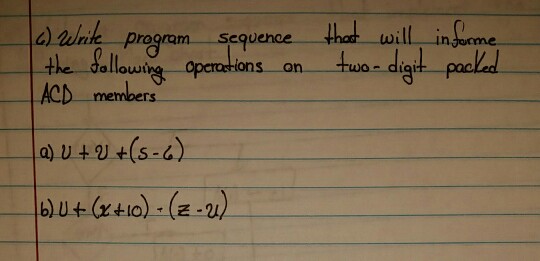 6) Write program sequence that will informe
the following operations on two-digit packed
ACD members
a) U + U + (5-6)
b) U + (x+10) - (z-u)